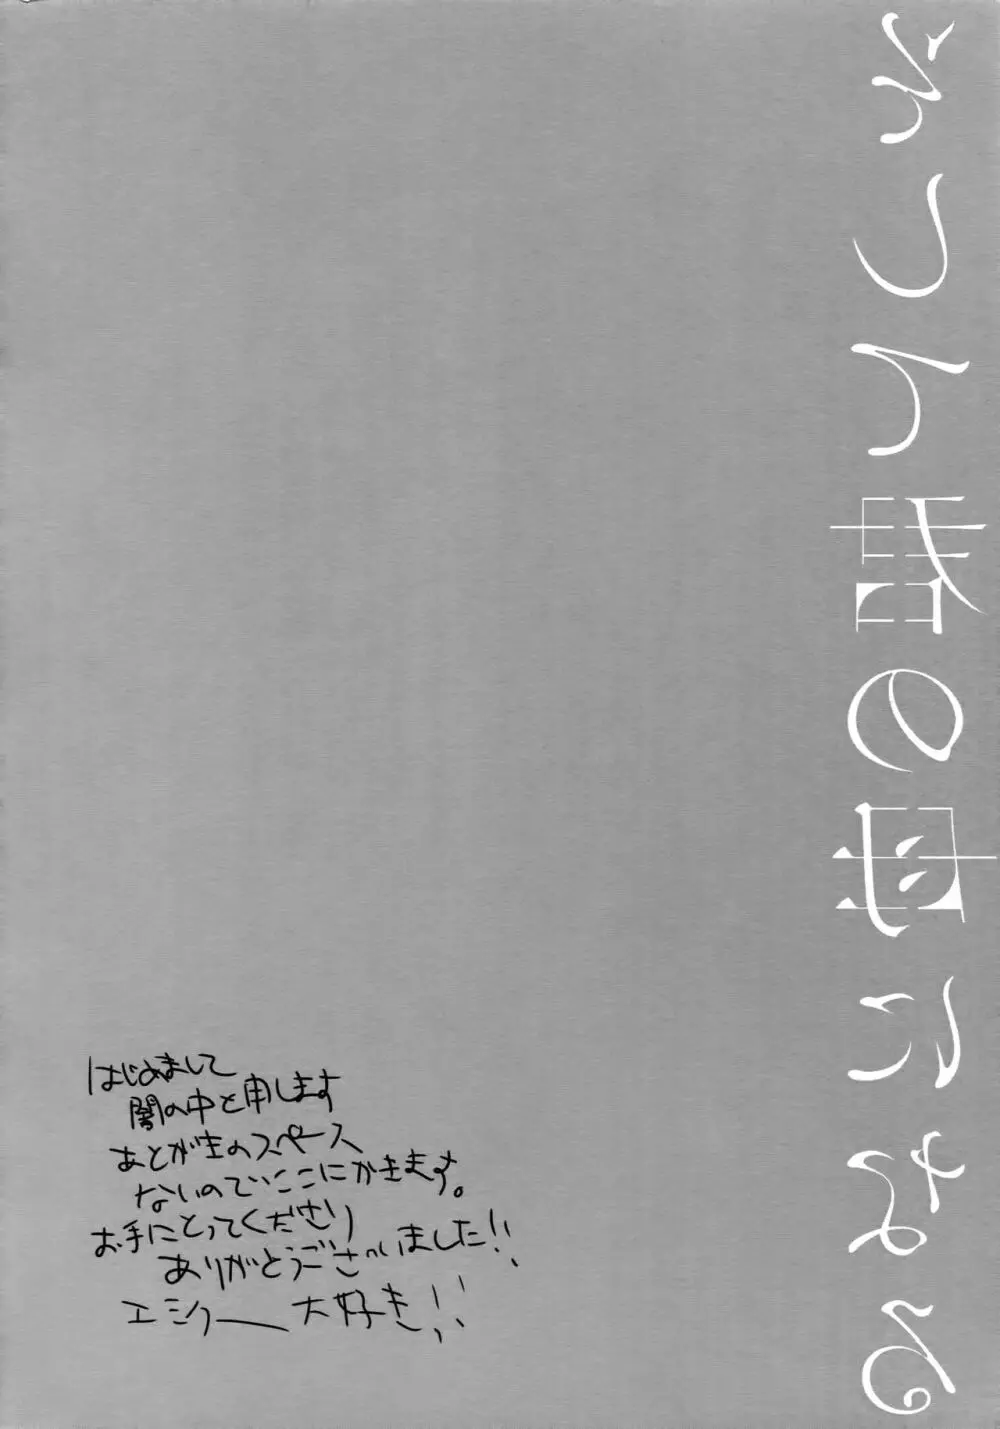 の母になる
はじめまして
闇の中と申します
あとがきのスペース
ないのでここにかきます。
お手にとってくださり
ありがとうございました!!
エシクー 大好き!!